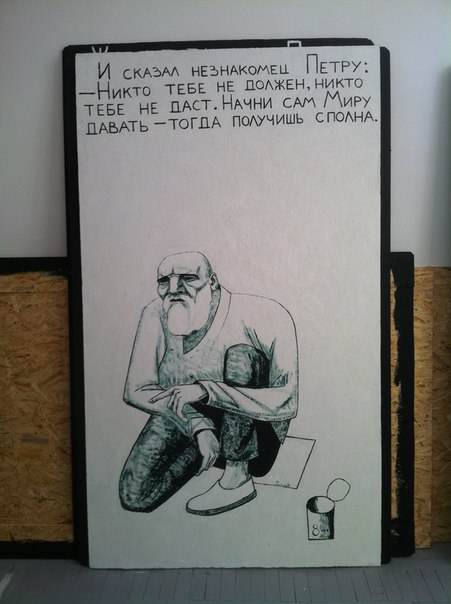 И СКАЗАЛ НЕЗНАКОМЕЦ ПЕТРУ:
—НИКТО ТЕБЕ НЕ ДОЛЖЕН, НИКТО
ТЕБЕ НЕ ДАСТ. НАЧНИ САМ МИРУ
ДАВАТЬ — ТОГДА ПОЛУЧИШЬ СПОЛНА.